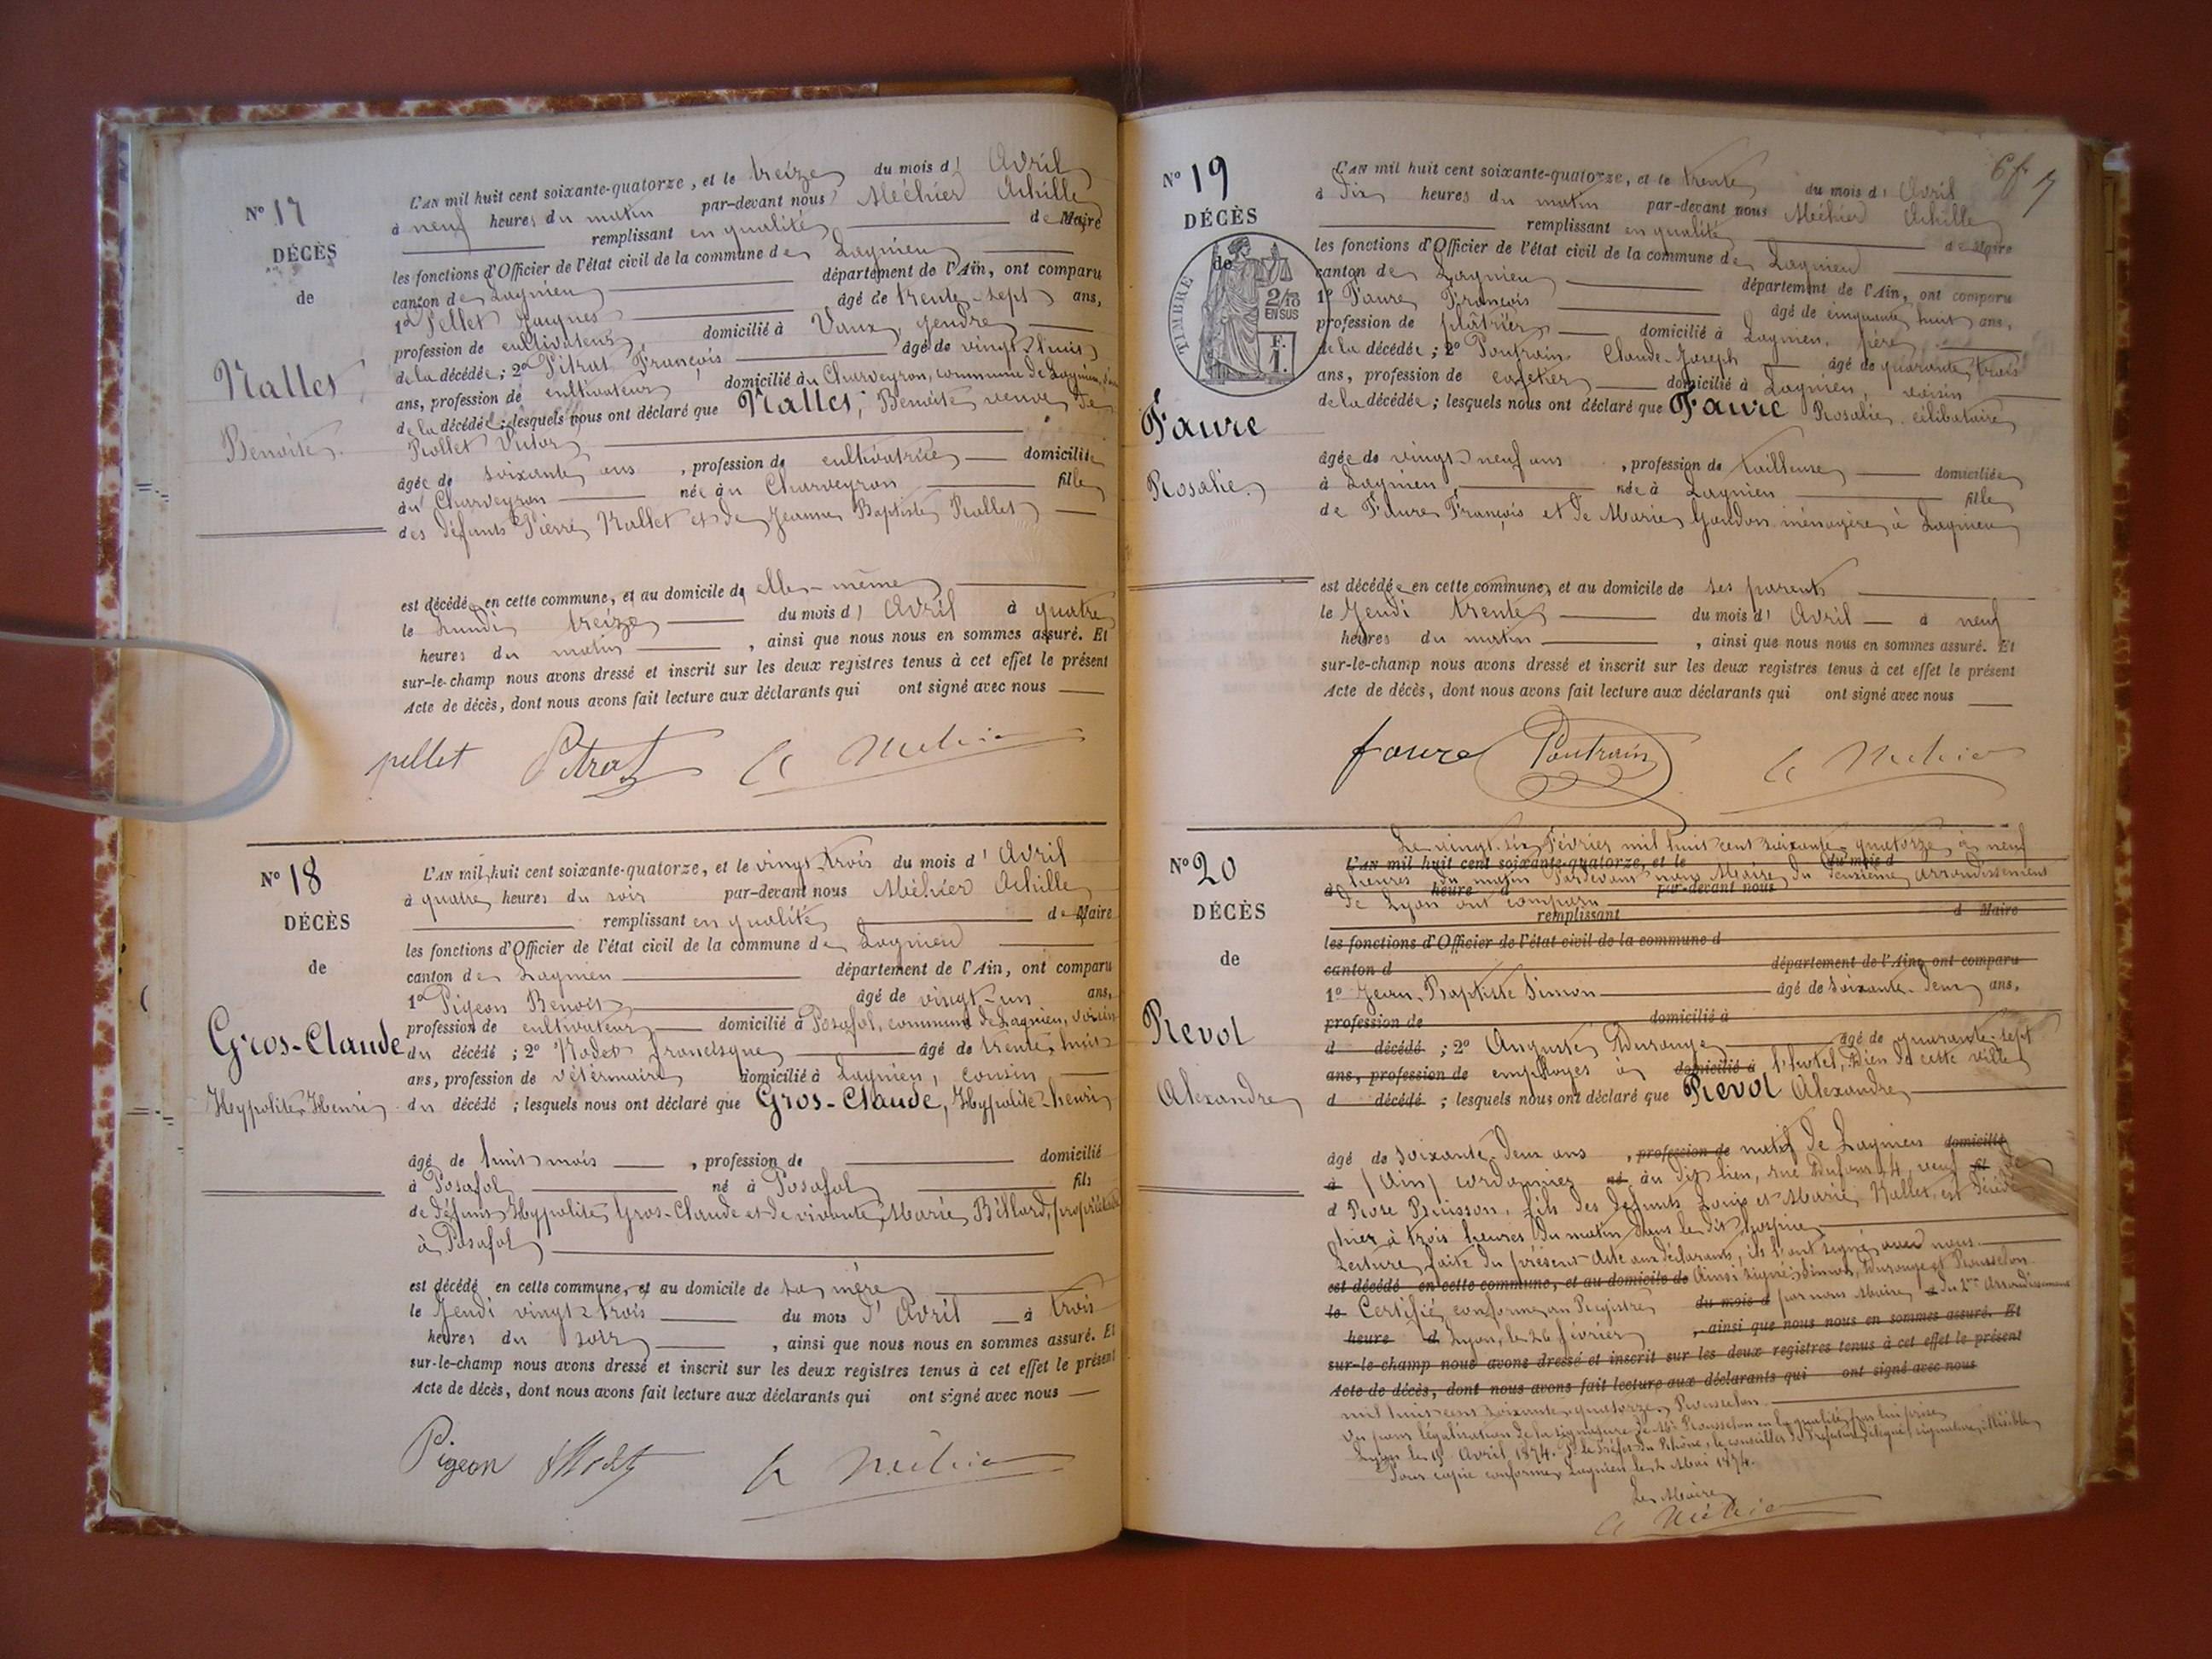 N° 17
DÉCÈS
de
Nallet
Benoite.
L'AN mil huit cent soixante-quatorze, et le treize du mois d' Avril
à neuf heures du matin par-devant nous Méhier Achille
remplissant en qualité de Maire
les fonctions d'Officier de l'état civil de la commune de Lagnieu
canton de Lagnieu département de l'Ain, ont comparu
1° Pellet Jacques âgé de trente-sept ans,
profession de cultivateur domicilié à Vaux, gendre
de la décédée; 2° Pitrat François âgé de vingt-huit
ans, profession de cultivateur domicilié au Charveyron, commune de Lagnieu,
de la décédée; lesquels nous ont déclaré que Nallet, Benoite veuve de
Rollet Victor
âgée de soixante ans, profession de cultivatrice domiciliée
au Charveyron née au Charveyron fille
des défunts Pierre Nallet et de Jeanne Baptiste Rollet
est décédée en cette commune, et au domicile de elle-même
le Lundi treize du mois d' Avril à quatre
heures du matin, ainsi que nous nous en sommes assuré. Et
sur-le-champ nous avons dressé et inscrit sur les deux registres tenus à cet effet le présent
Acte de décès, dont nous avons fait lecture aux déclarants qui ont signé avec nous
pellet Pitrat A Méhier
N° 18
DÉCÈS
de
Gros-Claude
Hypolite Henri
L'AN mil huit cent soixante-quatorze, et le vingt-trois du mois d' Avril
à quatre heures du soir par-devant nous Méhier Achille
remplissant en qualité de Maire
les fonctions d'Officier de l'état civil de la commune de Lagnieu
canton de Lagnieu département de l'Ain, ont comparu
1° Pigeon Benoit âgé de vingt-un ans,
profession de cultivateur domicilié à Posafol, commune de Lagnieu, voisin
du décédé; 2° Rodet Francisque âgé de trente-huit
ans, profession de vétérinaire domicilié à Lagnieu, cousin
du décédé; lesquels nous ont déclaré que Gros-Claude, Hypolite-henri
âgé de huit mois, profession de domicilié
à Posafol né à Posafol fils
de défunt Hypolite Gros-Claude et de vivante Marie Billard, propriétaire
à Posafol
est décédé en cette commune, et au domicile de sa mère
le Jeudi vingt-trois du mois d'Avril à trois
heures du soir, ainsi que nous nous en sommes assuré. Et
sur-le-champ nous avons dressé et inscrit sur les deux registres tenus à cet effet le présent
Acte de décès, dont nous avons fait lecture aux déclarants qui ont signé avec nous
Pigeon Rodet A Méhier
N° 19
DÉCÈS
de
TIMBRE
2/10
EN SUS
F.
1.
Faure
Rosalie.
L'AN mil huit cent soixante-quatorze, et le trente du mois d' Avril
à dix heures du matin par-devant nous Méhier Achille
remplissant en qualité de Maire
les fonctions d'Officier de l'état civil de la commune de Lagnieu
canton de Lagnieu département de l'Ain, ont comparu
1° Faure François âgé de cinquante huit ans,
profession de plâtrier domicilié à Lagnieu, père
de la décédée; 2° Poutrain Claude-Joseph âgé de quarante trois
ans, profession de cafetier domicilié à Lagnieu, voisin
de la décédée; lesquels nous ont déclaré que Faure Rosalie célibataire
âgée de vingt-neuf ans, profession de tailleuse domiciliée
à Lagnieu, née à Lagnieu fille
de Faure François et de Marie Goudon ménagère à Lagnieu
est décédée en cette commune, et au domicile de ses parents
le Jeudi trente du mois d' Avril à neuf
heures du matin, ainsi que nous nous en sommes assuré. Et
sur-le-champ nous avons dressé et inscrit sur les deux registres tenus à cet effet le présent
Acte de décès, dont nous avons fait lecture aux déclarants qui ont signé avec nous
faure Poutrain A Méhier
N° 20
DÉCÈS
de
Revol
Alexandre
Le vingt-six Février mil huit cent soixante-quatorze à neuf
L'AN mil huit cent soixante-quatorze, et le du mois d
heures du matin Pardevant nous Maire du deuxième arrondissement
à heure d par-devant nous
de Lyon ont comparu
remplissant d Maire
les fonctions d'Officier de l'état civil de la commune d
canton d département de l'Ain, ont comparu
1° Jean-Baptiste Simon âgé de soixante-deux ans,
profession de domicilié à
d décédé; 2° Auguste Durouge âgé de quarante-sept
ans, profession de employés à domicilié à l'hotel-Dieu de cette ville
d décédé; lesquels nous ont déclaré que Revol Alexandre
âgé de soixante-deux ans, profession de natif de Lagnieu domicilié
à (Ain) cordonnier né au dit lieu, rue Dufour 14, veuf fil de
d Rose Buisson, fils des défunts Louis et Marie Nallet, est décédé
hier à trois heures du matin dans le dit hospice
Lecture faite du présent acte aux déclarants, ils l'ont signé avec nous
est décédé en cette commune, et au domicile de Ainsi signé: Simon, Durouge et Rousselon
le Certifié conforme au Registre du mois d par nous Maire du 2me Arrondissement
heure d Lyon, le 26 février, ainsi que nous nous en sommes assuré. Et
sur-le-champ nous avons dressé et inscrit sur les deux registres tenus à cet effet le présent
Acte de décès, dont nous avons fait lecture aux déclarants qui ont signé avec nous
mil huit cent soixante-quatorze, Rousselon
Vu pour légalisation de la signature de Mr Rousselon en la qualité par lui prise
Lyon le 19 Avril 1874. Pr le Préfet du Rhône, le conseiller de Préfecture délégué (signature illisible)
Pour copie conforme Lagnieu le 2 Mai 1874.
Le Maire
A Méhier